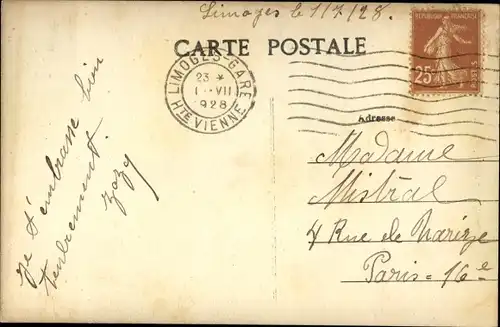 Limoges le 1/7/28.
CARTE POSTALE
REPUBLIQUE FRANÇAISE
25c
POSTES
LIMOGES-GARE
23 *
1 -VII
1928
HTE VIENNE
Adresse
Je t'embrasse bien
tendrement.
Zozo
Madame
Mistral
4 Rue de
Paris = 16e